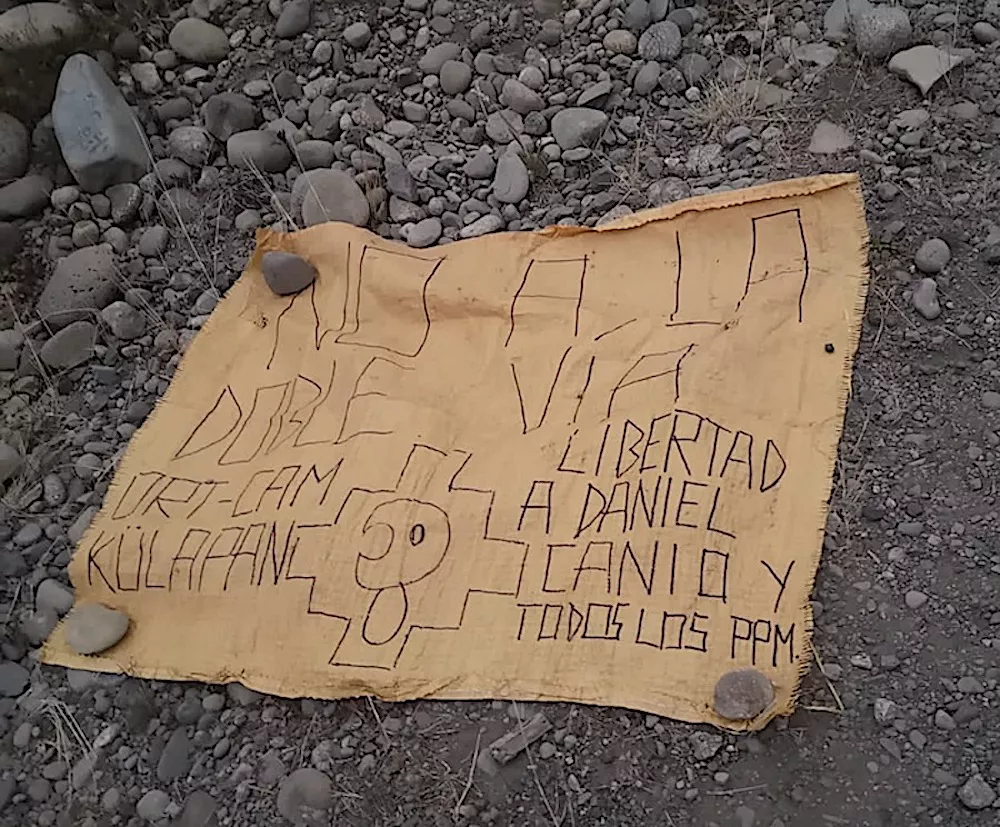 NO A LA
DOBLE VÍA
ORT-CAM
KÜLAPANG
LIBERTAD
A DANIEL
CANIO Y
TODOS LOS PPM.